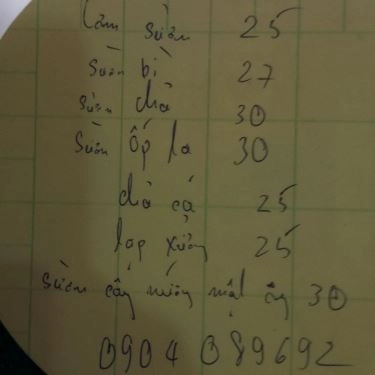 Cơm sườn 25
Sườn bì 27
sườn chả 30
Sườn ốp la 30
chả cá 25
lạp xưởng 25
sườn cây nướng mật ong 30
0904 089692